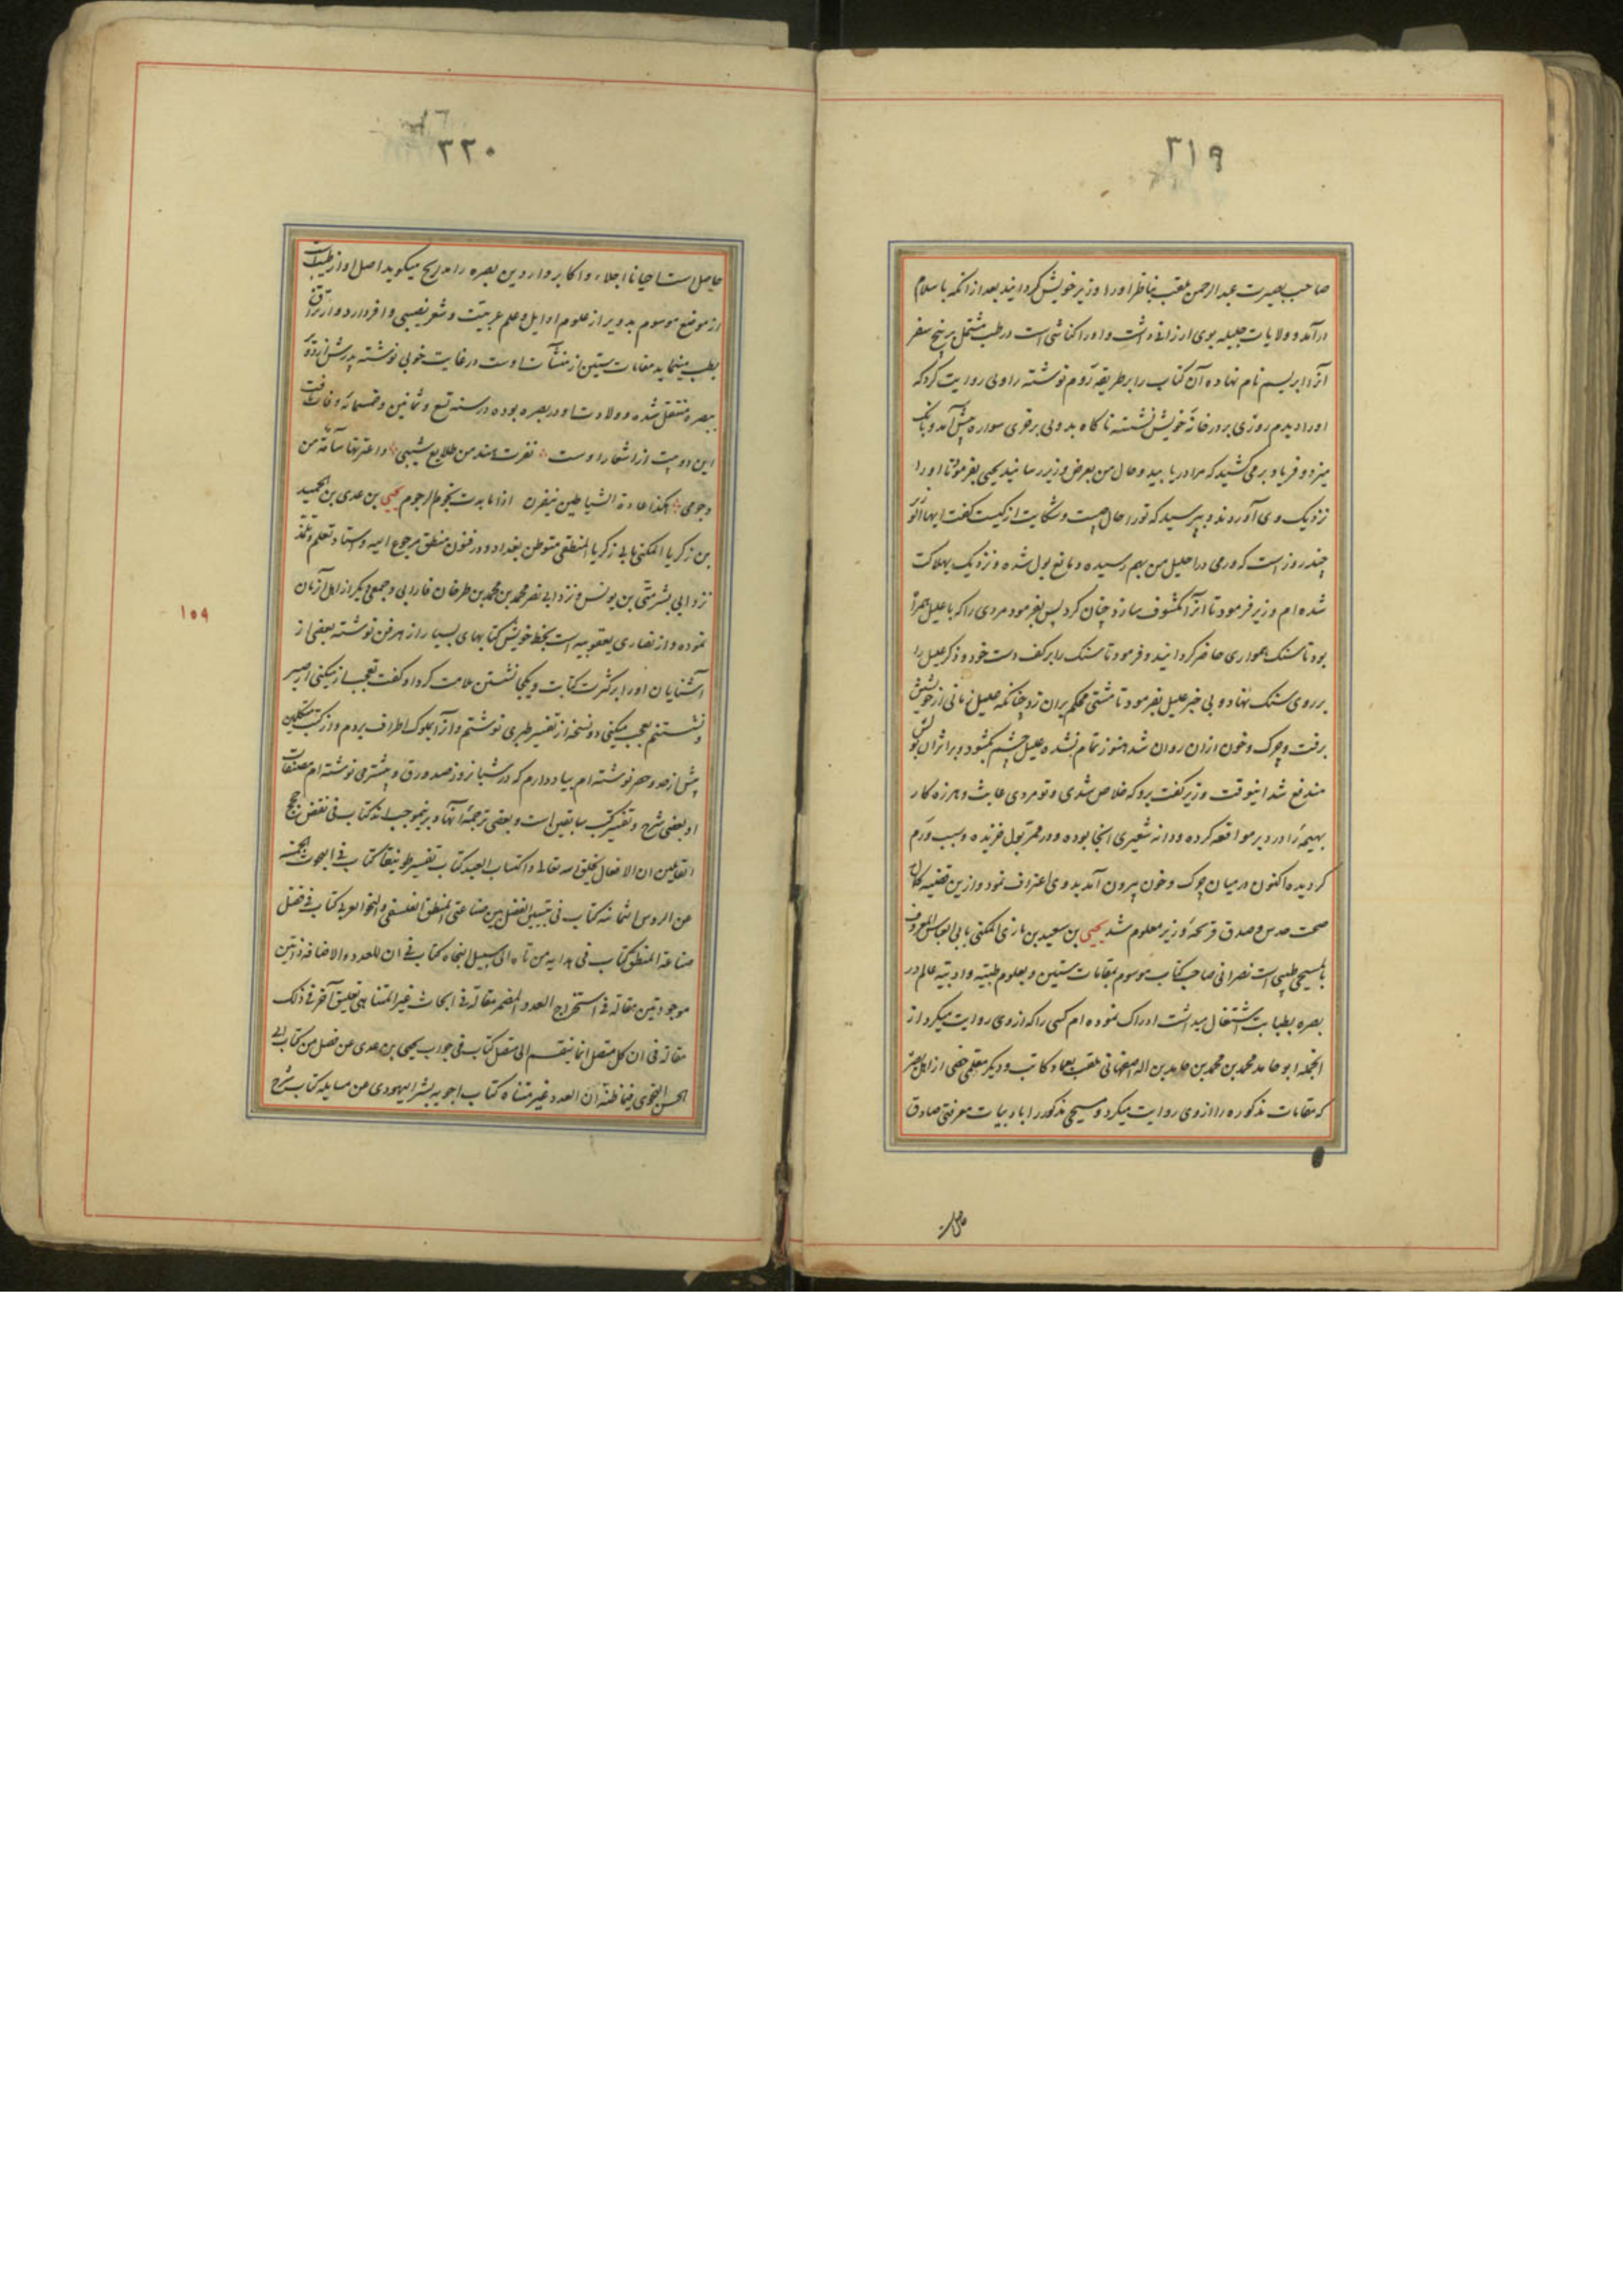 ٣١٩
صاحب بصیرت عبد الرحمن ملقب بناظر اورا وزیر خویش گردانید بعد از انکه باسلام
درآمد و ولایات جلیله بوی ارزانی داشت و او را کناشی است در طب مشتمل بر پنج سفر
آنرا ابریسم نام نهاده آن کتاب را بر طریقه روم نوشته راوی روایت کرد که
او را دیدم روزی بر در خانه خویش نشسته ناکاه بدویی بر خری سواره پیش آمد و بانک
میزد و فریاد بر می کشید که مرا دریابید و حال من بعرض وزیر رسانید یحیی بفرمود تا او را
نزدیک وی آوردند و پرسید که تورا حال چیست و شکایت از کیست کفت ایها الوزیر
چند روز است که ورمی در احلیل من بهم رسیده و مانع بول شده و نزدیک بهلاکت
شده ام وزیر فرمود تا انرا مکشوف سازد چنان کرد پس بفرمود مردی را که با علیل همراه
بود تا سنک همواری حاضر کردانید و فرمود تا سنک را بر کف دست خود و ذکر علیل را
بر روی سنک نهاد و بی خبر علیل بفرمود تا مشتی محکم بران زد چنانکه علیل زمانی از خویش
برفت و چرک و خون ازان روان شد هنوز تمام نشده علیل چشم بکشود و بر اثر آن بولش
مندفع شد اینوقت وزیر کفت برو که خلاص شدی و تو مردی عابث و هرزه کار
بهیمه را در دبر مواقعه کرده و دانه شعیری انجا بوده و در ممر بول خزیده و سبب ورم
کردیده اکنون در میان چرک و خون بیرون آمد بدوی اعتراف نمود و ازین قضیه کمال
صحت حدس و صدق قریحه وزیر معلوم شد یحیی بن سعید بن ماری المکنی بابی العباس المعروف
بالمسیحی طبیبی است نصرانی صاحب کتاب موسوم بمقامات ستین و بعلوم طبیه و ادبیه عالم در
بصره بطبابت اشتغال میداشت ادراک نموده ام کسی را که از وی روایت میکرد از
انجمله ابو حامد محمد بن محمد بن حامد بن اله اصفهانی ملقب بعماد کاتب و دیکر معلمی حنفی از اهل بصره
که مقامات مذکوره را از وی روایت میکرد و مسیحی مذکور را بادبیات معرفتی صادق
حاصل
٣٢٠
حاصل است احیانا اجلاء و اکابر واردین بصره را مدایح میکوید اصل او از طبیبات
از موضع موسوم بدویر از علوم اوایل و علم عربیت و شعر نصیبی وافر دارد و ارتزاق
بطب مینماید مقامات ستین از منشآت اوست در غایت خوبی نوشته پدرش از دویره
ببصره منتقل شده و ولادت او در بصره بوده در سنه تسع و ثمانین و خمسمائه وفات یافت
این دو بیت از اشعار اوست نفرت هند من طلایع شیبی و اعترتها سآمة من
وجومی هکذا عادة الشیاطین ینفرن اذا ما بدت نجوم الرجوم یحیی بن عدی بن حمید
بن زکریا المکنی بابی زکریا المنطقی متوطن بغداد و در فنون منطق مرجوع الیه و استاد تعلم و تلمذ
نزد ابی بشر متی بن یونس و نزد ابی نصر محمد بن محمد بن طرخان فارابی و جمعی دیکر از اهل آنزمان
نموده و از نصاری یعقوبیه است بخط خویش کتابهای بسیار از هر فن نوشته بعضی از
آشنایان او را بر کثرت کتابت و یکجا نشستن ملامت کرد او کفت تعجب از چه میکنی از صبر
و نشستنم تعجب میکنی دو نسخه از تفسیر طبری نوشتم و آنرا بملوک اطراف بردم و از کتب متکلمین
بیش از حد و حصر نوشته ام بیاد دارم که در شبانروز صد ورق و بیشتر می نوشته ام مصنفات
او بعضی شرح و تفسیر کتب سابقین است و بعضی ترجمه آنها و برینموجب اند کتاب فی نقض حجج
القایلین ان الافعال بخلق الله تعالی و اکتساب العبد کتاب تفسیر طوبیقا کتاب فی البحوث الخمسه
عن الروس الثمانیه کتاب فی تبیین الفضل بین صناعتی المنطق الفلسفی و النحو العربی کتاب فی فضل
صناعة المنطق کتاب فی هدایه من تاه الی سبیل النجاه کتاب فی ان للعدد و الاضافة ذاتین
موجودتین مقالة فی استخراج العدد المضمر مقالة فی ابحاث غیر المتناهی تعلیق آخر فی ذلک
مقالة فی ان کل متصل انما ینقسم الی متصل کتاب فی جواب یحیی بن عدی عن فصل من کتاب ابی
الحسن النحوی فیما ظنه ان العدد غیر متناه کتاب اجوبه بشر الیهودی عن مسایله کتاب شرح
١٥٩